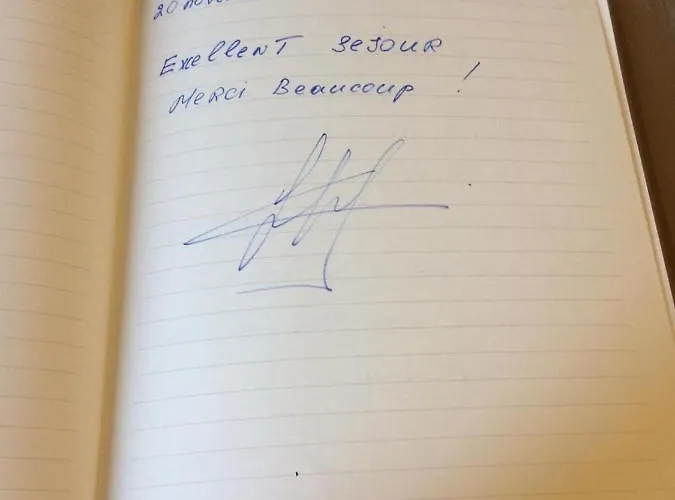 20 nove
Exellent sejour
Merci Beaucoup !